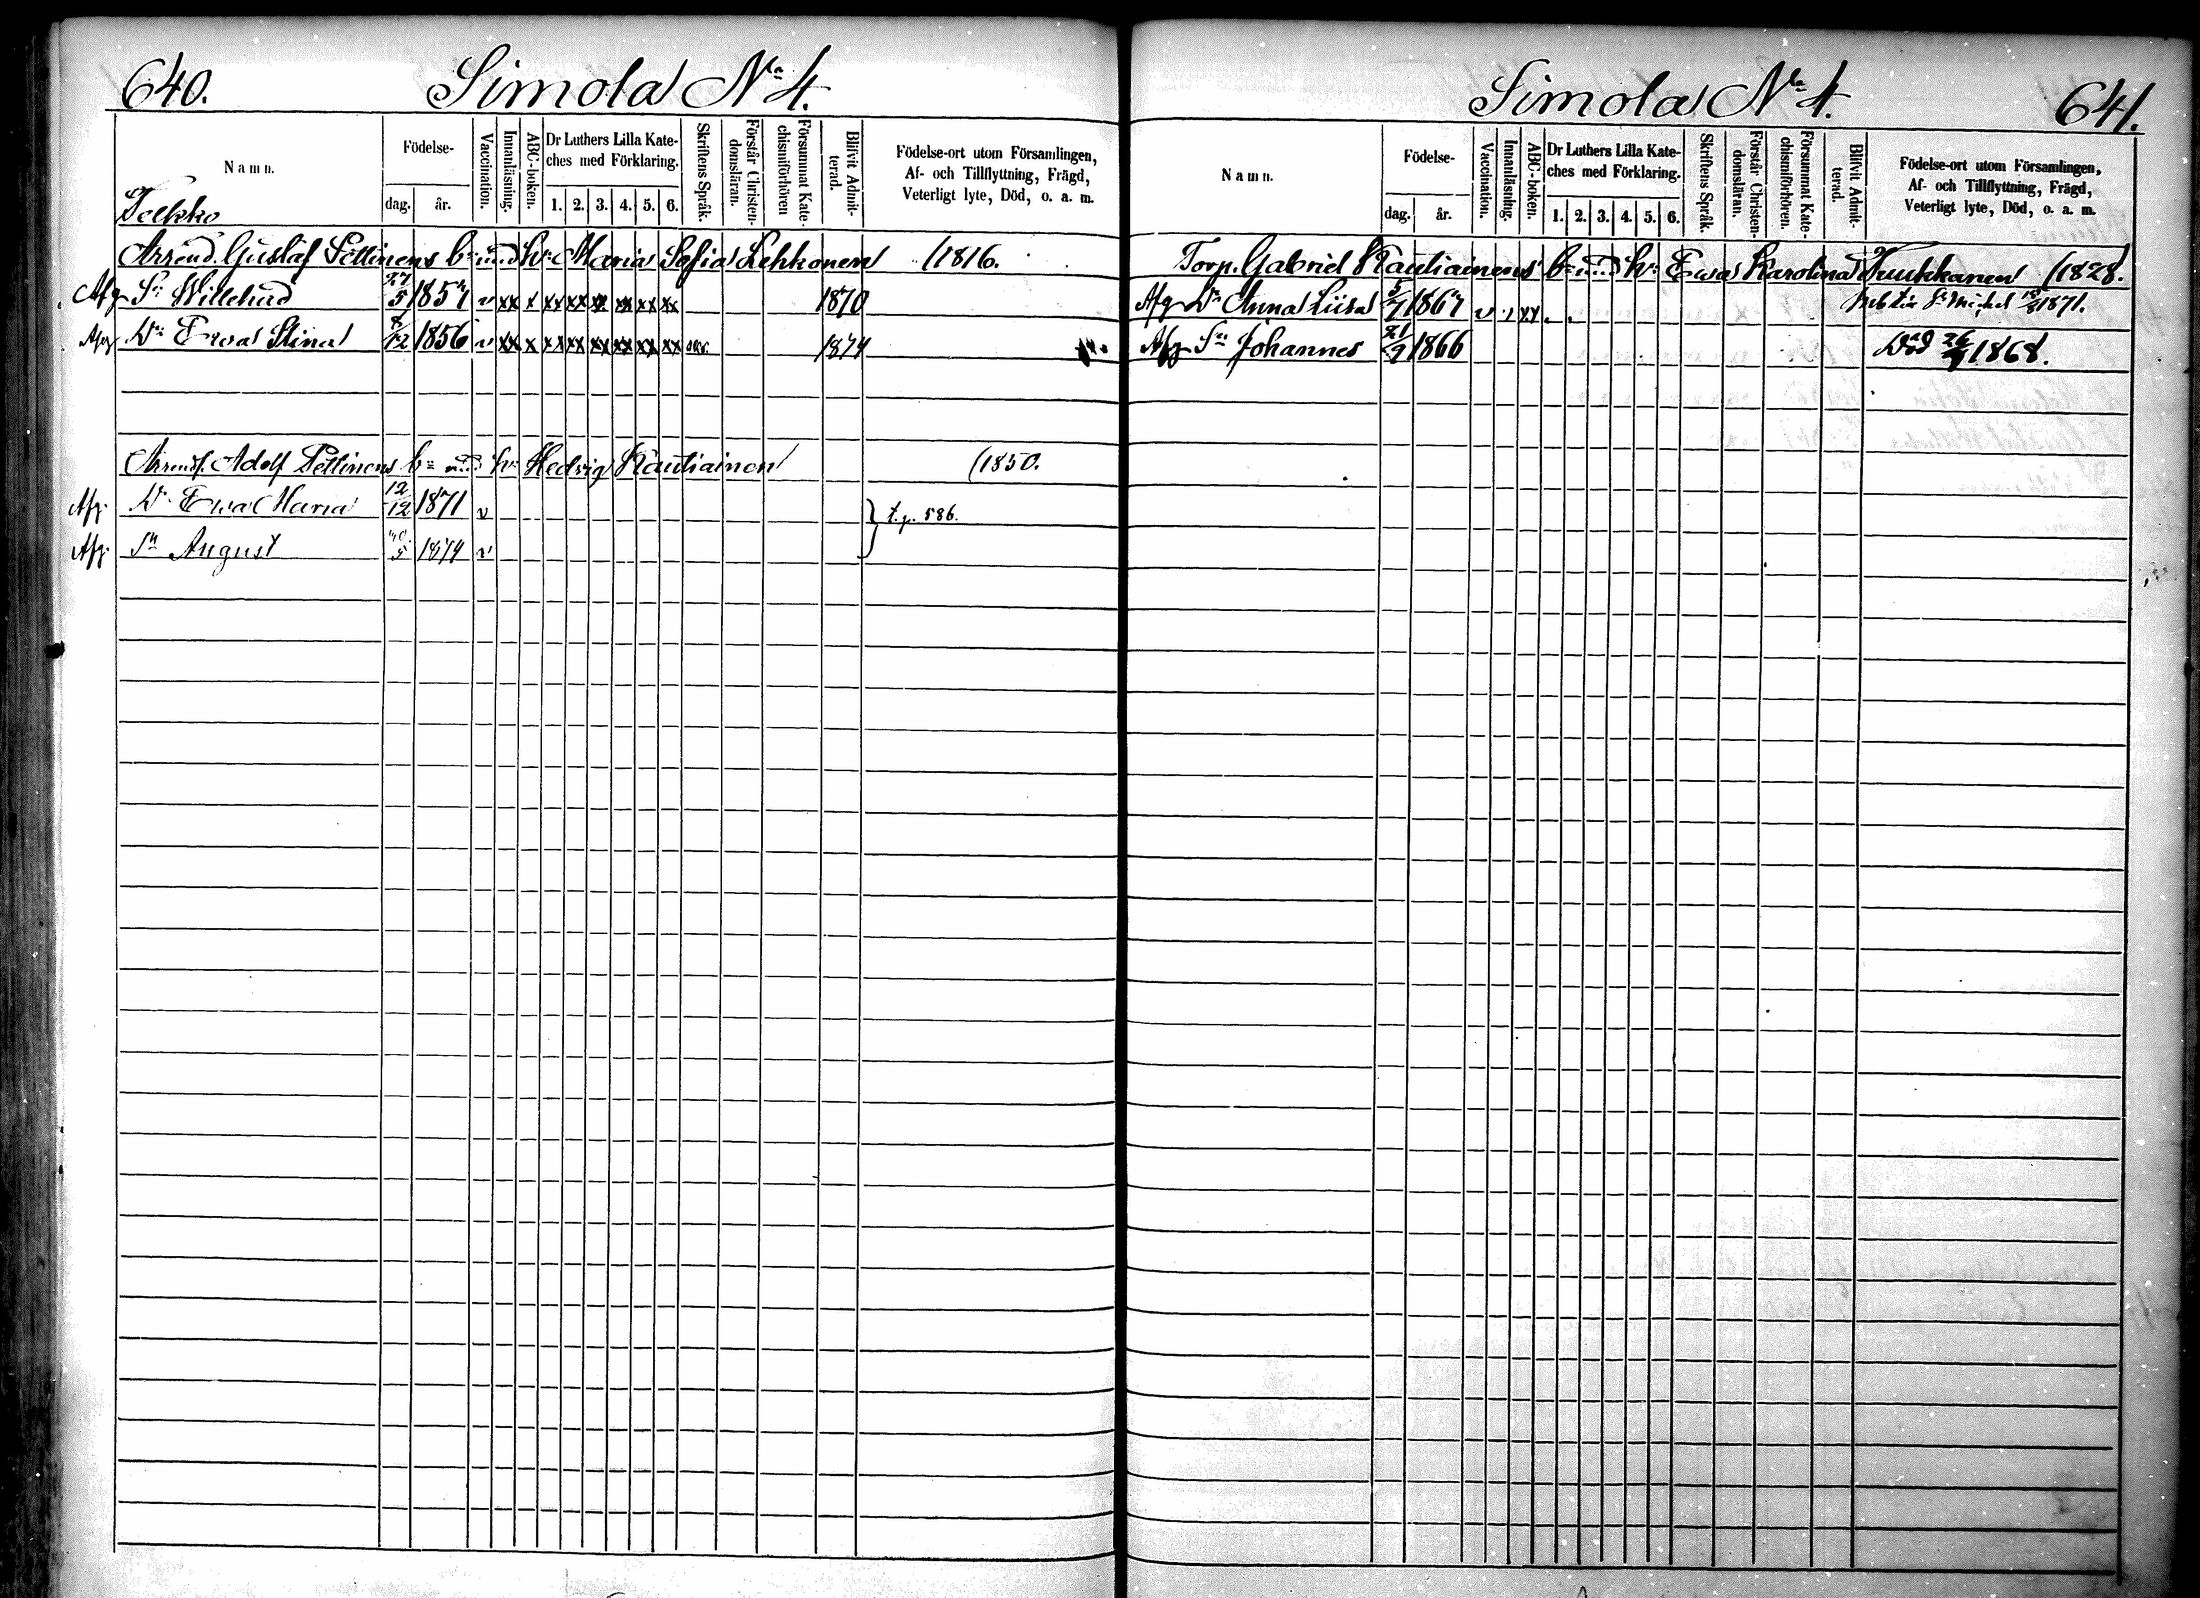 640. Simola No 4.
Namn. Födelse- dag. år. Vaccination. Innanläsning. ABC-boken. Dr Luthers Lilla Kateches med Förklaring. 1. 2. 3. 4. 5. 6. Skriftens Språk. Förstår Christendomsläran. Försummat Katechismiförhören Blifvit Admitterad. Födelse-ort utom Församlingen, Af- och Tillflyttning, Frägd, Veterligt lyte, Död, o. a. m.
Telkko
Arrend. Gustaf Pellinens bn med h. Maria Sofia Lehkonen (1816.
Afg Sn Willehad 27/5 1851 v xx x xx xx x xx xx xx 1870
Afg Dr Ewa Stina 8/12 1856 v xx x xx xx xx xx xx xx 1874
Arrend. Adolf Pellinens bn med h. Hedvig Kautiainen (1850.
Afg. Dr Ewa Maria 12/12 1871 v
t. p. 586.
Afg. Sn August 5 1874 v
Simola No 4. 641.
Namn. Födelse- dag. år. Vaccination. Innanläsning. ABC-boken. Dr Luthers Lilla Kateches med Förklaring. 1. 2. 3. 4. 5. 6. Skriftens Språk. Förstår Christendomsläran. Försummat Katechismiförhören. Blifvit Admitterad. Födelse-ort utom Församlingen, Af- och Tillflyttning, Frägd, Veterligt lyte, Död, o. a. m.
Torp. Gabriel Kautiainens bn med h. Ewa Karolina Kuukkanen (1828.
Afg Dr Anna Liisa 5/7 1861 v St Michel 1871.
Afg Sn Johannes 21/9 1866 Död 26/9 1868.